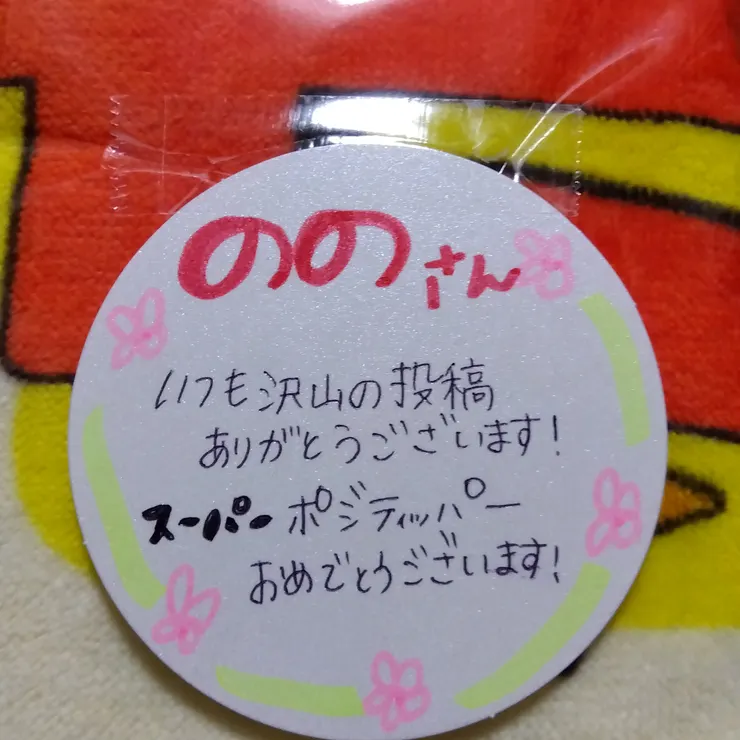 ののさん
いつも沢山の投稿
ありがとうございます!
スーパーポジティッパー
おめでとうございます!